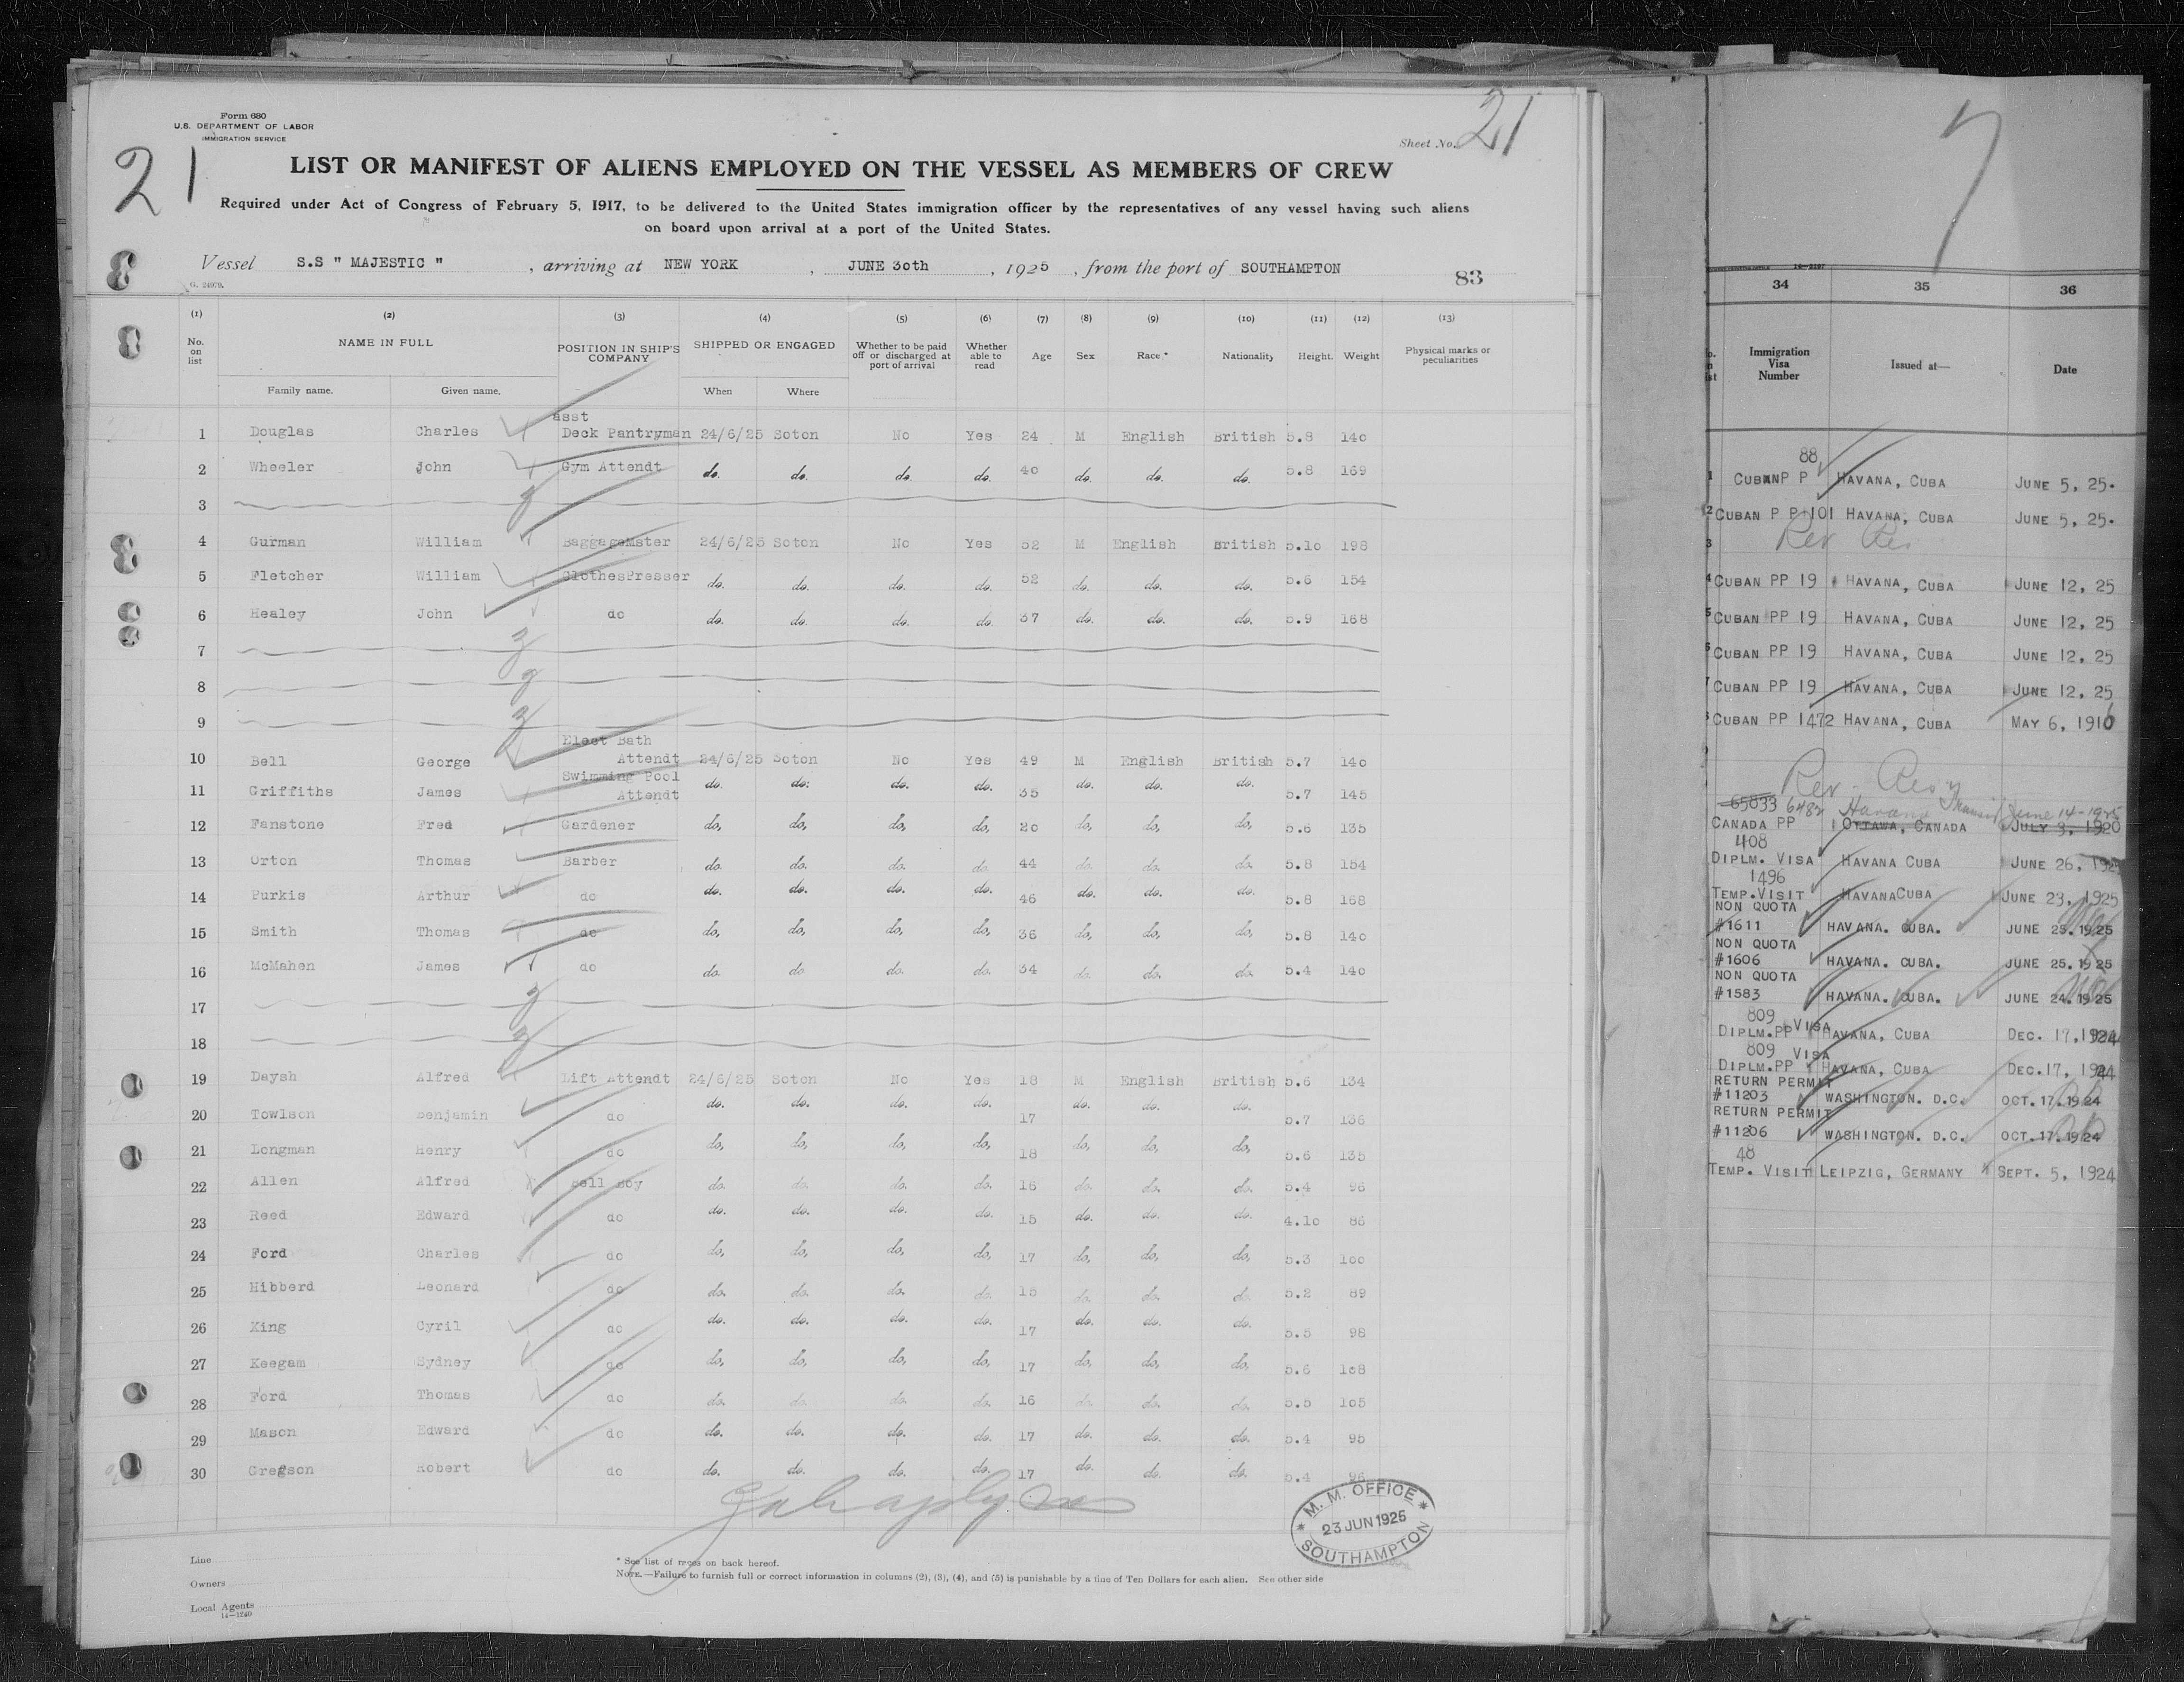 Form 680
U.S. DEPARTMENT OF LABOR
IMMIGRATION SERVICE
21
Sheet No. 21
LIST OR MANIFEST OF ALIENS EMPLOYED ON THE VESSEL AS MEMBERS OF CREW
Required under Act of Congress of February 5, 1917, to be delivered to the United States immigration officer by the representatives of any vessel having such aliens
on board upon arrival at a port of the United States.
Vessel S.S " MAJESTIC " , arriving at NEW YORK , JUNE 30th , 1925 , from the port of SOUTHAMPTON
G. 24979.
83
(1) (2) (3) (4) (5) (6) (7) (8) (9) (10) (11) (12) (13)
No. on list NAME IN FULL POSITION IN SHIP'S COMPANY SHIPPED OR ENGAGED Whether to be paid off or discharged at port of arrival Whether able to read Age Sex Race.* Nationality Height. Weight Physical marks or peculiarities
Family name. Given name. When Where
asst
1 Douglas Charles Deck Pantryman 24/6/25 Soton No Yes 24 M English British 5.8 140
2 Wheeler John Gym Attendt do. do. do. do. 40 do. do. do. 5.8 169
3
4 Gurman William BaggageMster 24/6/25 Soton No Yes 52 M English British 5.10 198
5 Fletcher William ClothesPresser do. do. do. do. 52 do. do. do. 5.6 154
6 Healey John do do. do. do. do. 37 do. do. do. 5.9 168
7
8
9
Elect Bath
10 Bell George Attendt 24/6/25 Soton No Yes 49 M English British 5.7 140
Swimming Pool
11 Griffiths James Attendt do. do. do. do. 35 do. do. do. 5.7 145
12 Fanstone Fred Gardener do, do, do, do, 20 do, do, do, 5.6 135
13 Orton Thomas Barber do. do. do. do. 44 do. do. do. 5.8 154
14 Purkis Arthur do do. do. do. do. 46 do. do. do. 5.8 168
15 Smith Thomas do do, do, do, do, 36 do, do, do, 5.8 140
16 McMahen James do do. do do. do. 34 do. do. do. 5.4 140
17
18
19 Daysh Alfred Lift Attendt 24/6/25 Soton No Yes 18 M English British 5.6 134
20 Towlson Benjamin do do. do. do. do. 17 do. do. do. 5.7 136
21 Longman Henry do do, do, do, do, 18 do, do, do, 5.6 135
22 Allen Alfred Bell Boy do. do. do. do. 16 do. do. do. 5.4 96
23 Reed Edward do do. do. do. do. 15 do. do. do. 4.10 86
24 Ford Charles do do, do, do, do, 17 do, do, do, 5.3 100
25 Hibberd Leonard do do. do. do. do. 15 do. do. do. 5.2 89
26 King Cyril do do. do. do. do. 17 do. do. do. 5.5 98
27 Keegam Sydney do do, do, do, do, 17 do, do, do, 5.6 108
28 Ford Thomas do do. do. do. do. 16 do. do. do. 5.5 105
29 Mason Edward do do. do. do. do. 17 do. do. do. 5.4 95
30 Gregson Robert do do. do. do. do. 17 do. do. do. 5.4 96
M. M. OFFICE
23 JUN 1925
SOUTHAMPTON
Line
Owners
Local Agents
14—1240
* See list of races on back hereof.
NOTE.—Failure to furnish full or correct information in columns (2), (3), (4), and (5) is punishable by a fine of Ten Dollars for each alien. See other side
7
34 35 36
Immigration Visa Number Issued at— Date
88
1 CUBAN P P HAVANA, CUBA JUNE 5, 25.
2 CUBAN P P 101 HAVANA, CUBA JUNE 5, 25.
3
4 CUBAN PP 19 HAVANA, CUBA JUNE 12, 25
5 CUBAN PP 19 HAVANA, CUBA JUNE 12, 25
6 CUBAN PP 19 HAVANA, CUBA JUNE 12, 25
7 CUBAN PP 19 HAVANA, CUBA JUNE 12, 25
CUBAN PP 1472 HAVANA, CUBA MAY 6, 1916
65833 6482 Havana June 14-1925
CANADA PP OTTAWA, CANADA JULY 3, 1920
408
DIPLM. VISA HAVANA CUBA JUNE 26, 1925
1496
TEMP. VISIT HAVANA CUBA JUNE 23, 1925
NON QUOTA
#1611 HAVANA. CUBA. JUNE 25. 1925
NON QUOTA
#1606 HAVANA. CUBA. JUNE 25. 1925
NON QUOTA
#1583 HAVANA. CUBA. JUNE 24. 1925
809
DIPLM. PP VISA HAVANA, CUBA DEC. 17, 1924
809
DIPLM. PP VISA HAVANA, CUBA DEC. 17, 1924
RETURN PERMIT
#11203 WASHINGTON. D.C. OCT. 17. 1924
RETURN PERMIT
#11206 WASHINGTON. D.C. OCT. 17. 1924
48
TEMP. VISIT LEIPZIG, GERMANY SEPT. 5, 1924